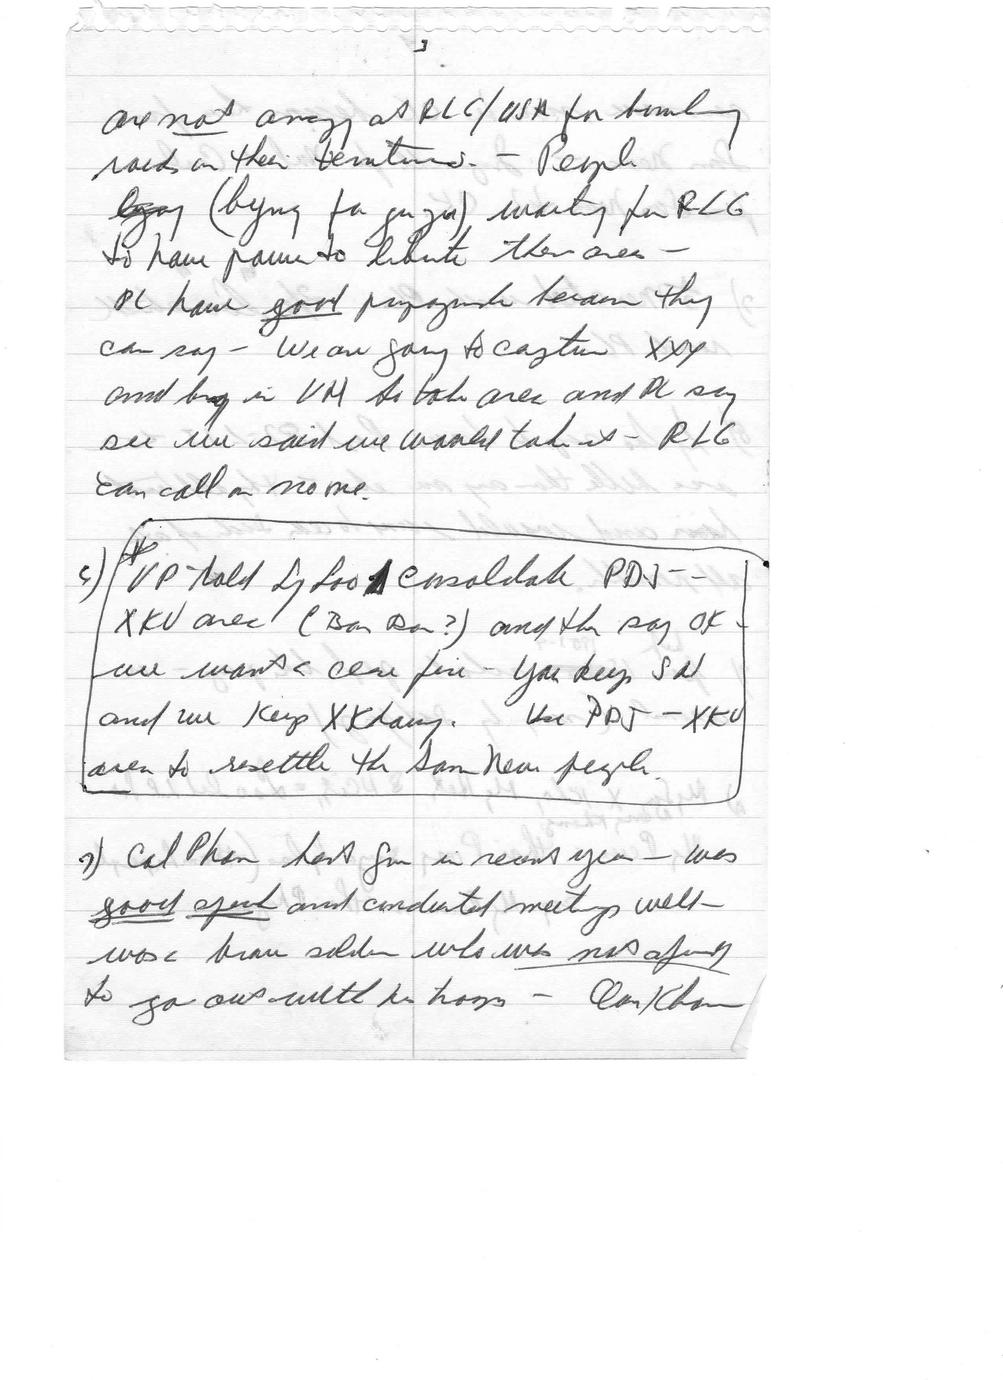 3
are not angry at RLG/USA for bombing
raids on their territories. - People
(bying for gen gen) waiting for RLG
to have power to liberate their area -
PL have good propaganda because they
can say - We are going to capture XXY
and bring in VM to take area and PL say
see we said we would take it - RLG
can call on no one.
* VP told Ly Foo consolidate PDJ --
XKV area (Ban Ban?) and then say OK -
we want a cease fire - You keep SN
and we keep XKhang. Use PDJ - XKV
area to resettle the Sam Neua people.
7) Col Phan best gov in recent years - was
good speech and conducted meetings well -
was a brave soldier who was not afraid
to go out with his troops -